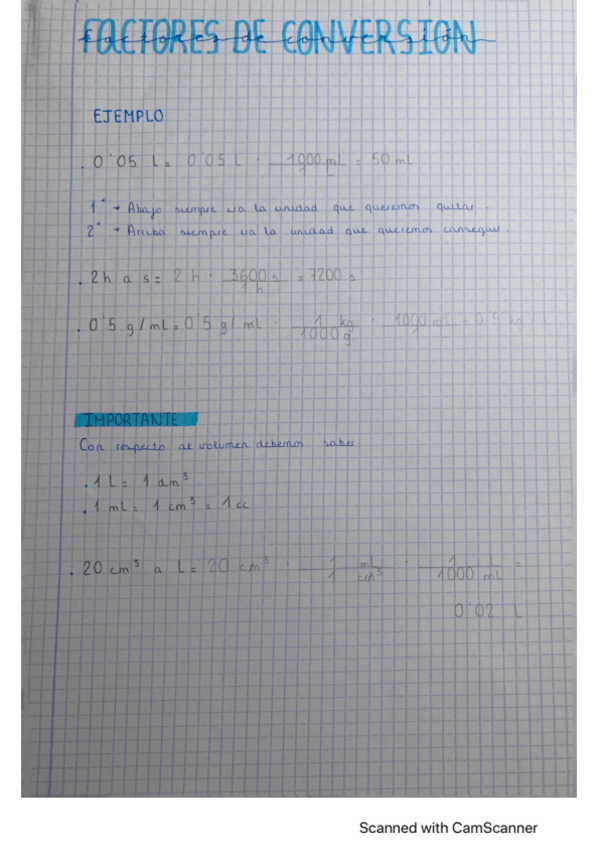 FACTORES DE CONVERSIÓN
Factores de conversión
EJEMPLO
. 0'05 L = 0'05 L · 1000 mL / L = 50 mL
1º → Abajo siempre va la unidad que queremos quitar.
2º → Arriba siempre va la unidad que queremos conseguir.
. 2h a s = 2 h · 3600 s / 1 h = 7200 s
. 0'5 g/mL = 0'5 g/mL · 1 kg / 1000 g · 1000 mL = 0'5 kg
IMPORTANTE
Con respecto al volumen debemos saber:
. 1 L = 1 dm³
. 1 mL = 1 cm³ = 1 cc
. 20 cm³ a L = 20 cm³ · 1 mL / 1 cm³ · 1 L / 1000 mL =
0'02 L
Scanned with CamScanner